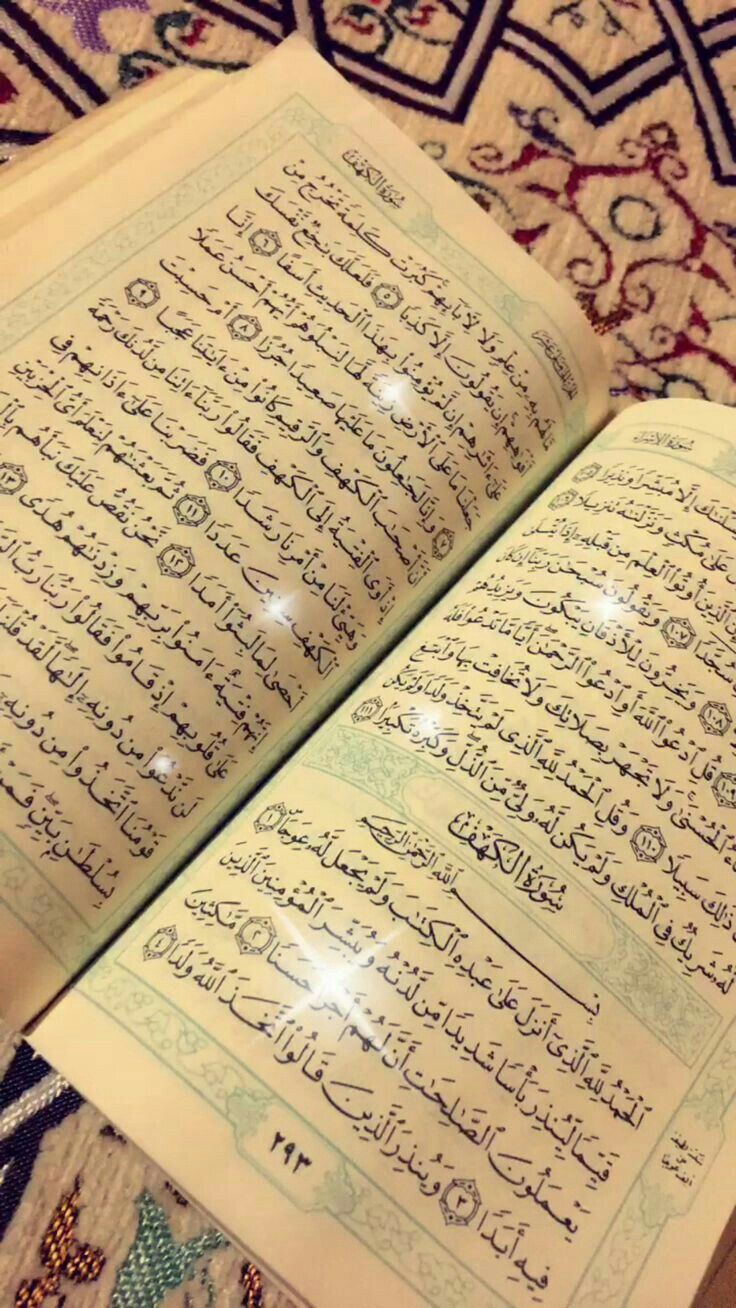 سُورَةُ الإِسْرَاءِ
إِلَّا مُبَشِّرًا وَنَذِيرًا
عَلَىٰ مُكْثٍ وَنَزَّلْنَٰهُ تَنزِيلًا
ٱلَّذِينَ أُوتُوا۟ ٱلْعِلْمَ مِن قَبْلِهِۦٓ إِذَا يُتْلَىٰ
سُجَّدًا ١٠٧ وَيَقُولُونَ سُبْحَٰنَ رَبِّنَآ إِن كَانَ
١٠٨ وَيَخِرُّونَ لِلْأَذْقَانِ يَبْكُونَ وَيَزِيدُهُمْ
١٠٩ قُلِ ٱدْعُوا۟ ٱللَّهَ أَوِ ٱدْعُوا۟ ٱلرَّحْمَٰنَ أَيًّا مَّا تَدْعُوا۟ فَلَهُ
ٱلْحُسْنَىٰ وَلَا تَجْهَرْ بِصَلَاتِكَ وَلَا تُخَافِتْ بِهَا وَٱبْتَغِ
ذَٰلِكَ سَبِيلًا ١١٠ وَقُلِ ٱلْحَمْدُ لِلَّهِ ٱلَّذِى لَمْ يَتَّخِذْ وَلَدًا وَلَمْ يَكُن
لَّهُۥ شَرِيكٌ فِى ٱلْمُلْكِ وَلَمْ يَكُن لَّهُۥ وَلِىٌّ مِّنَ ٱلذُّلِّ وَكَبِّرْهُ تَكْبِيرًۢا ١١١
سُورَةُ الكَهْفِ
بِسْمِ ٱللَّهِ ٱلرَّحْمَٰنِ ٱلرَّحِيمِ
ٱلْحَمْدُ لِلَّهِ ٱلَّذِىٓ أَنزَلَ عَلَىٰ عَبْدِهِ ٱلْكِتَٰبَ وَلَمْ يَجْعَل لَّهُۥ عِوَجَا ۜ ١
قَيِّمًا لِّيُنذِرَ بَأْسًا شَدِيدًا مِّن لَّدُنْهُ وَيُبَشِّرَ ٱلْمُؤْمِنِينَ ٱلَّذِينَ
يَعْمَلُونَ ٱلصَّٰلِحَٰتِ أَنَّ لَهُمْ أَجْرًا حَسَنًا ٢ مَّٰكِثِينَ
فِيهِ أَبَدًا ٣ وَيُنذِرَ ٱلَّذِينَ قَالُوا۟ ٱتَّخَذَ ٱللَّهُ وَلَدًا ٤
٢٩٣
سُورَةُ الكَهْفِ
مَّا لَهُم بِهِۦ مِنْ عِلْمٍ وَلَا لِـَٔابَآئِهِمْ ۚ كَبُرَتْ كَلِمَةً تَخْرُجُ مِنْ
أَفْوَٰهِهِمْ ۚ إِن يَقُولُونَ إِلَّا كَذِبًا ٥ فَلَعَلَّكَ بَٰخِعٌ نَّفْسَكَ
عَلَىٰٓ ءَاثَٰرِهِمْ إِن لَّمْ يُؤْمِنُوا۟ بِهَٰذَا ٱلْحَدِيثِ أَسَفًا ٦ إِنَّا
جَعَلْنَا مَا عَلَى ٱلْأَرْضِ زِينَةً لَّهَا لِنَبْلُوَهُمْ أَيُّهُمْ أَحْسَنُ عَمَلًا
٧ وَإِنَّا لَجَٰعِلُونَ مَا عَلَيْهَا صَعِيدًا جُرُزًا ٨ أَمْ حَسِبْتَ
أَنَّ أَصْحَٰبَ ٱلْكَهْفِ وَٱلرَّقِيمِ كَانُوا۟ مِنْ ءَايَٰتِنَا عَجَبًا ٩
إِذْ أَوَى ٱلْفِتْيَةُ إِلَى ٱلْكَهْفِ فَقَالُوا۟ رَبَّنَآ ءَاتِنَا مِن لَّدُنكَ رَحْمَةً
وَهَيِّئْ لَنَا مِنْ أَمْرِنَا رَشَدًا ١٠ فَضَرَبْنَا عَلَىٰٓ ءَاذَانِهِمْ فِى
ٱلْكَهْفِ سِنِينَ عَدَدًا ١١ ثُمَّ بَعَثْنَٰهُمْ لِنَعْلَمَ أَىُّ ٱلْحِزْبَيْنِ
أَحْصَىٰ لِمَا لَبِثُوٓا۟ أَمَدًا ١٢ نَّحْنُ نَقُصُّ عَلَيْكَ نَبَأَهُم
إِنَّهُمْ فِتْيَةٌ ءَامَنُوا۟ بِرَبِّهِمْ وَزِدْنَٰهُمْ هُدًى ١٣
عَلَىٰ قُلُوبِهِمْ إِذْ قَامُوا۟ فَقَالُوا۟ رَبُّنَا رَبُّ
لَن نَّدْعُوَا۟ مِن دُونِهِۦٓ إِلَٰهًا ۖ لَّقَدْ قُلْنَآ
قَوْمُنَا ٱتَّخَذُوا۟ مِن دُونِهِۦٓ
بِسُلْطَٰنٍۭ بَيِّنٍ ۖ فَمَنْ